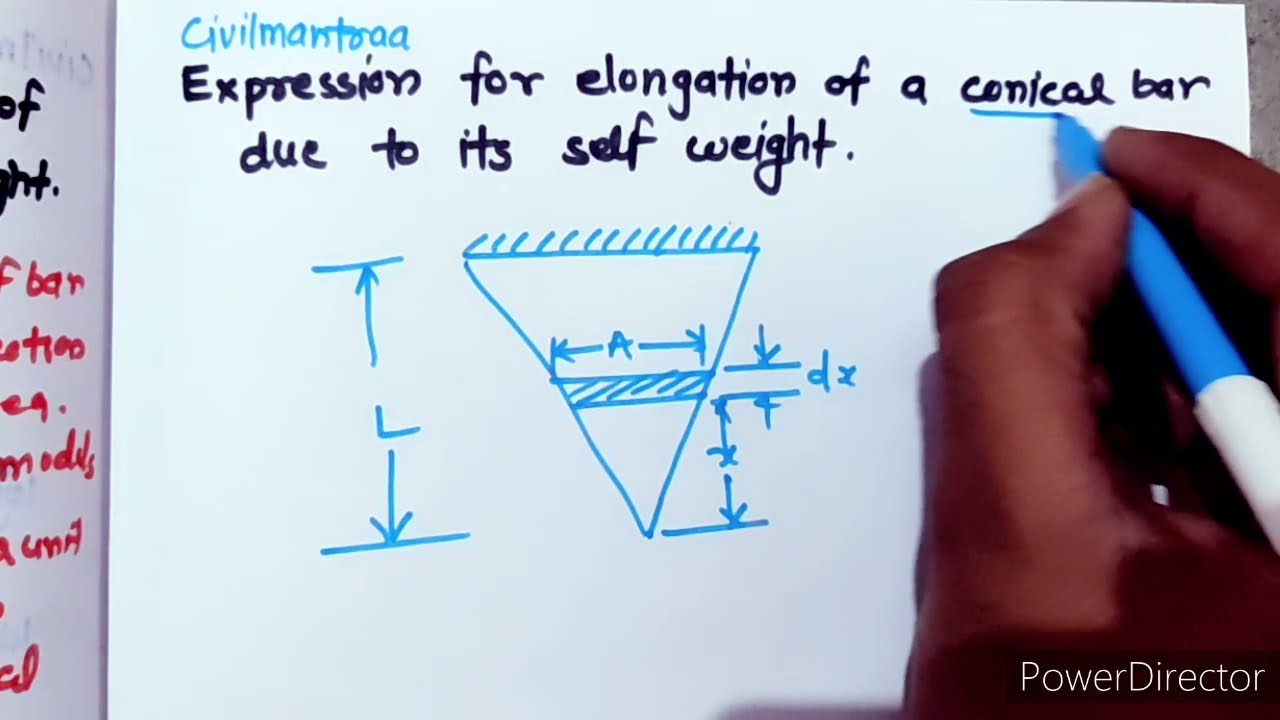 Civilmantraa
Expression for elongation of a conical bar
due to its self weight.
of
ght.
f bar
eq.
A
dx
L
x
PowerDirector